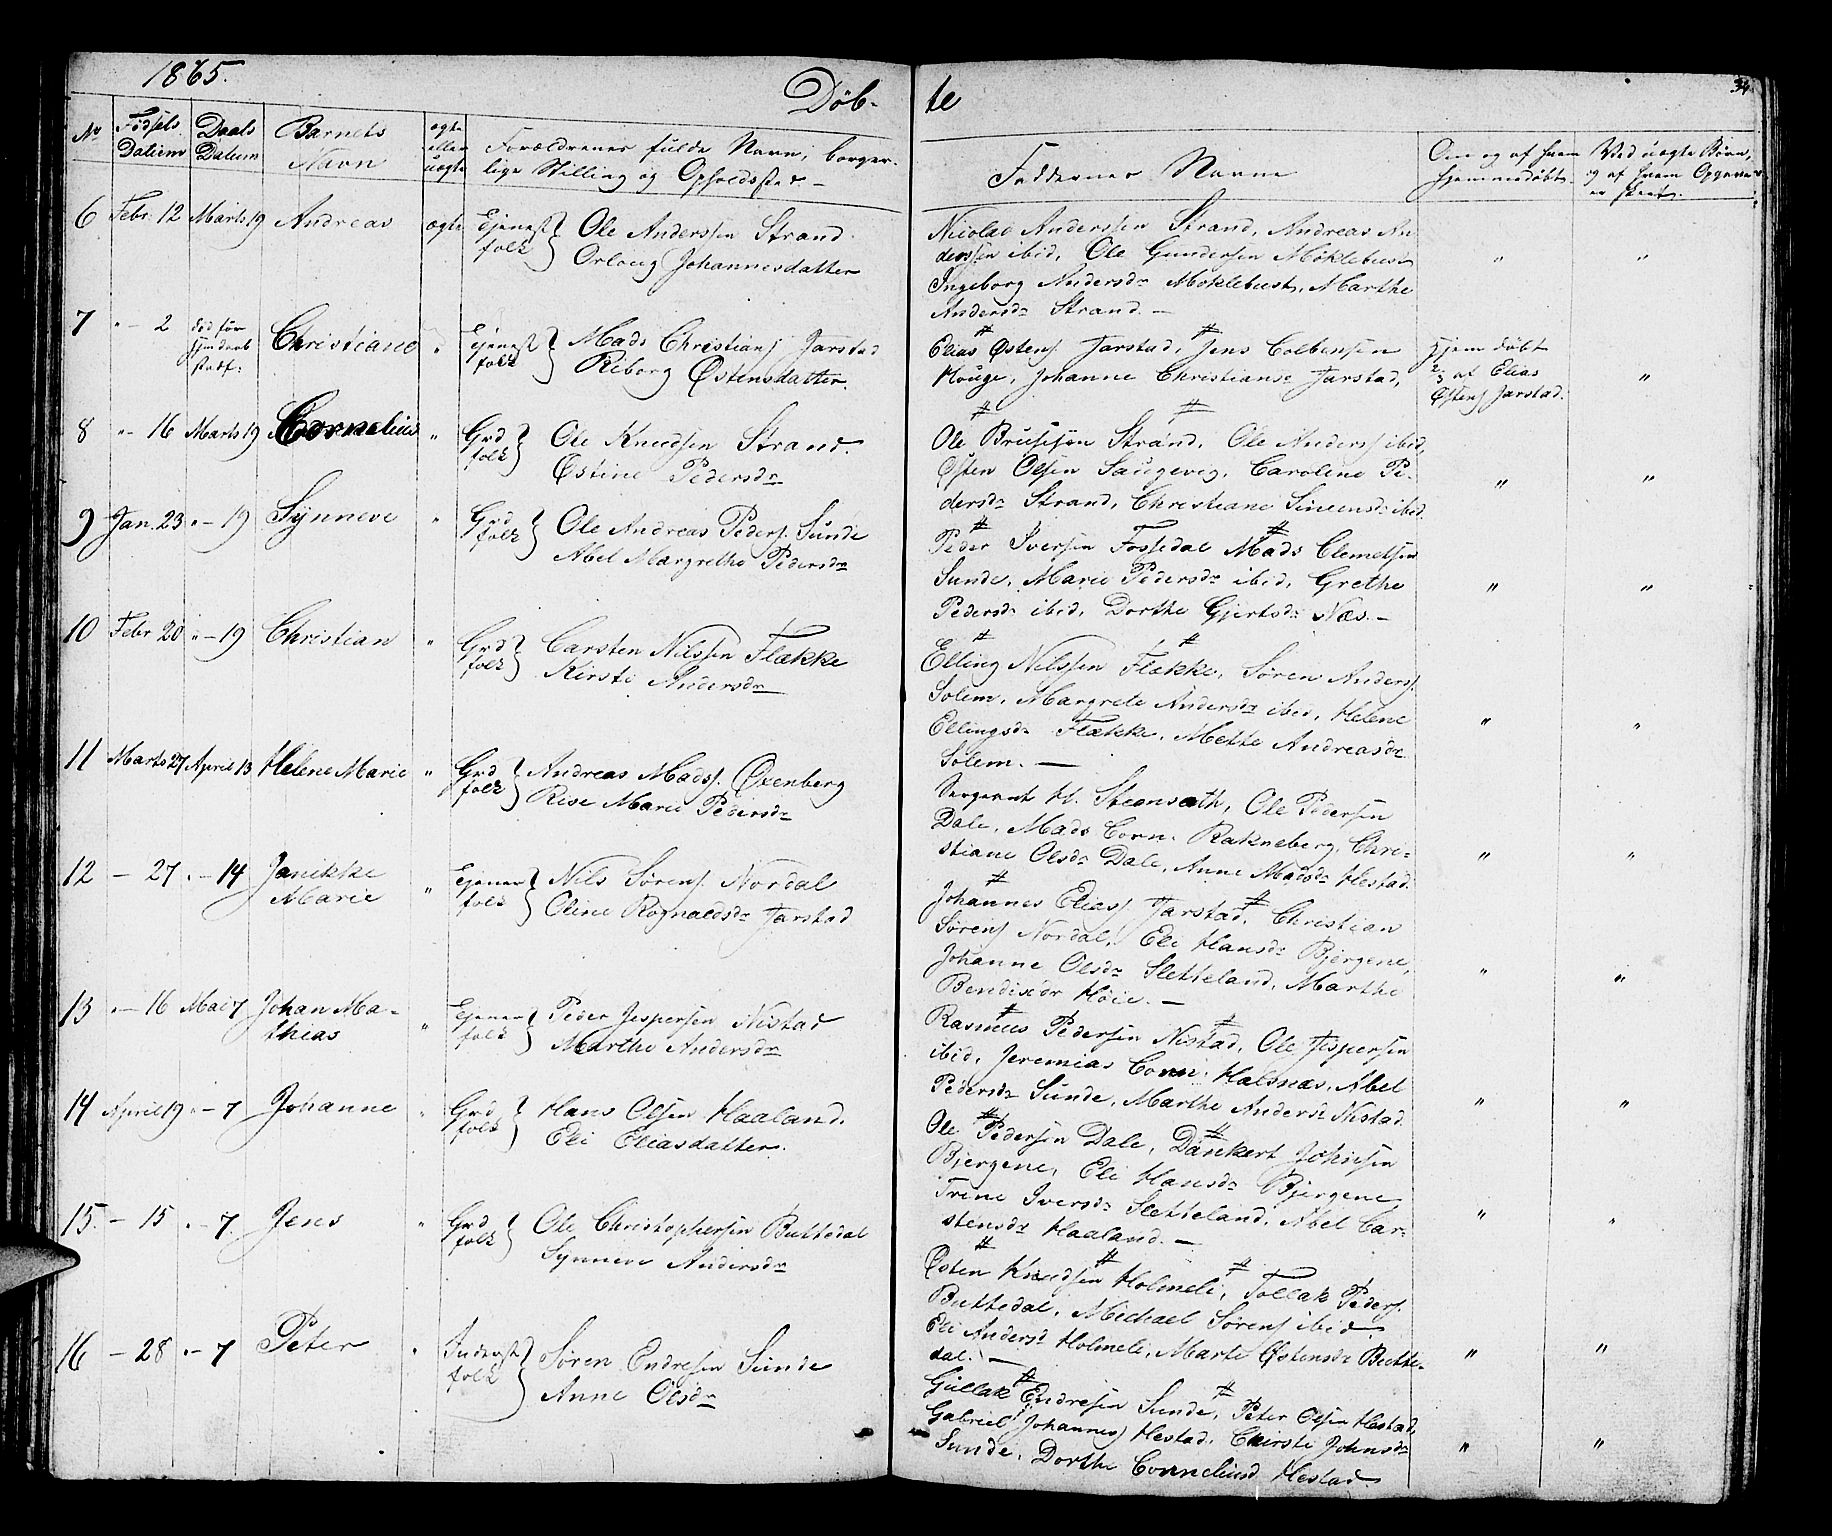 1865.
Døb-
te
34
No
Fødsels
Datum
Daabs
Datum
Barnets
Navn
ægte
eller
uægte
Forældrenes fulde Navn, borger-
lige Stilling og Opholdssted. -
Faddernes Navne
Om og af hvem
hjemmedøbt.
Ved uægte Børn,
og af hvem Opgaven
er skeet.
6 Febr. 12 Marts 19 Andreas ægte Ejenest folk
Ole Anderssen Strand.
Johannesdatter
Nicolai Anderssen Strand, Andreas An
derssen ibid, Ole Gundersen Møklebust
Ingeborg Andersdr Møklebust, Marthe
Andersdr Strand. -
" "
7 " - 2 Christiane " Ejenest folk
Mads Christians Jarstad
Riborg Østensdatter.
Elias Østens Jarstad, Jens Colbensen
Houge, Johanne Christiansd Jarstad,
Hjem døbt
2/3 af Elias
Østens Jarstad.
"
8 " - 16 Marts 19 Cornelius " Grd folk
Ole Knudsen Strand.
Østine Pedersdr
Ole Strand, Ole Anderss ibid,
Østen Olsen Saugevig, Caroline Pe-
dersdr Strand, Christiane Simensd ibid.
" "
9 Jan. 23 " - 19 Synneve " Grd folk
Ole Andreas Peders. Sunde
Abel Margrethe Pedersdr
Peder Iversen Fossedal Mads Clemetsen
Sunde, Marie Pedersdr ibid, Grethe
Pedersdr ibid, Dorthe Gjertsdr Næs. -
" "
10 Febr 20 " - 19 Christian " Grd folk
Carsten Nilssen Flække
Kirsti Andersdr
Elling Nilssen Flække, Søren Anders.
Solem, Margrete Andersdr ibid, Helene
Ellingsdr Flække, Mette Andreasdr
Solem. -
" "
11 Marts 27 April 13 Helene Marie " Grd folk
Andreas Madss. Oxenberg
Rise Marie Pedersdr
Sergeant H. Steensæth, Ole Pedersen
Dale, Mads Corn. Rakneberg, Chri-
stiane Olsdr Dale, Anne Madsdr Hestad.
" "
12 - 27 " - 14 Janikke
Marie " Ejener folk
Nils Sørens. Nordal
Oline Rognaldsdr Jarstad
Johannes Eliass Jarstad, Christian
Sørens Nordal, Eli Hansdr Bjergene,
Johanne Olsdr Sletteland, Marthe
Bendixdr Høie. -
" "
13 " - 16 Mai 7 Johan Ma-
thias " Ejener folk
Peder Jespersen Nistad
Marthe Andersdr
Rasmus Pedersen Nistad, Ole Jespersen
ibid, Jeremias Corn. Halsnæs, Abel
Pedersdr Sunde, Marthe Andersd Nistad.
" "
14 April 19 " - 7 Johanne " Grd folk
Hans Olsen Haaland.
Eli Eliasdatter.
Ole Pedersen Dale, Dankert Johnsen
Bjergene, Eli Hansdr Bjergene
Trine Iversdr Sletteland, Abel Car-
stensdr Haaland. -
" "
15. - 15 " - 7. Jens " Grd folk
Ole Christophersen Buttedal
Synneve Andersdr
Østen Knudsen Holmeli, Tollak Peders.
Buttedal, Michael Sørens ibid.
Eli Andersd Holmeli, Marte Østensdr Butte-
dal. -
" "
16 - 28 " - 7 Peter " Inderst folk
Søren Endresen Sunde
Anne Olsdr
Gullak Endresen Sunde, Peter Olsen Hestad,
Gabriel Johanness Hestad, Chirsti Johnsdr
Sunde, Dorthe Corneliusd Hestad.
" "